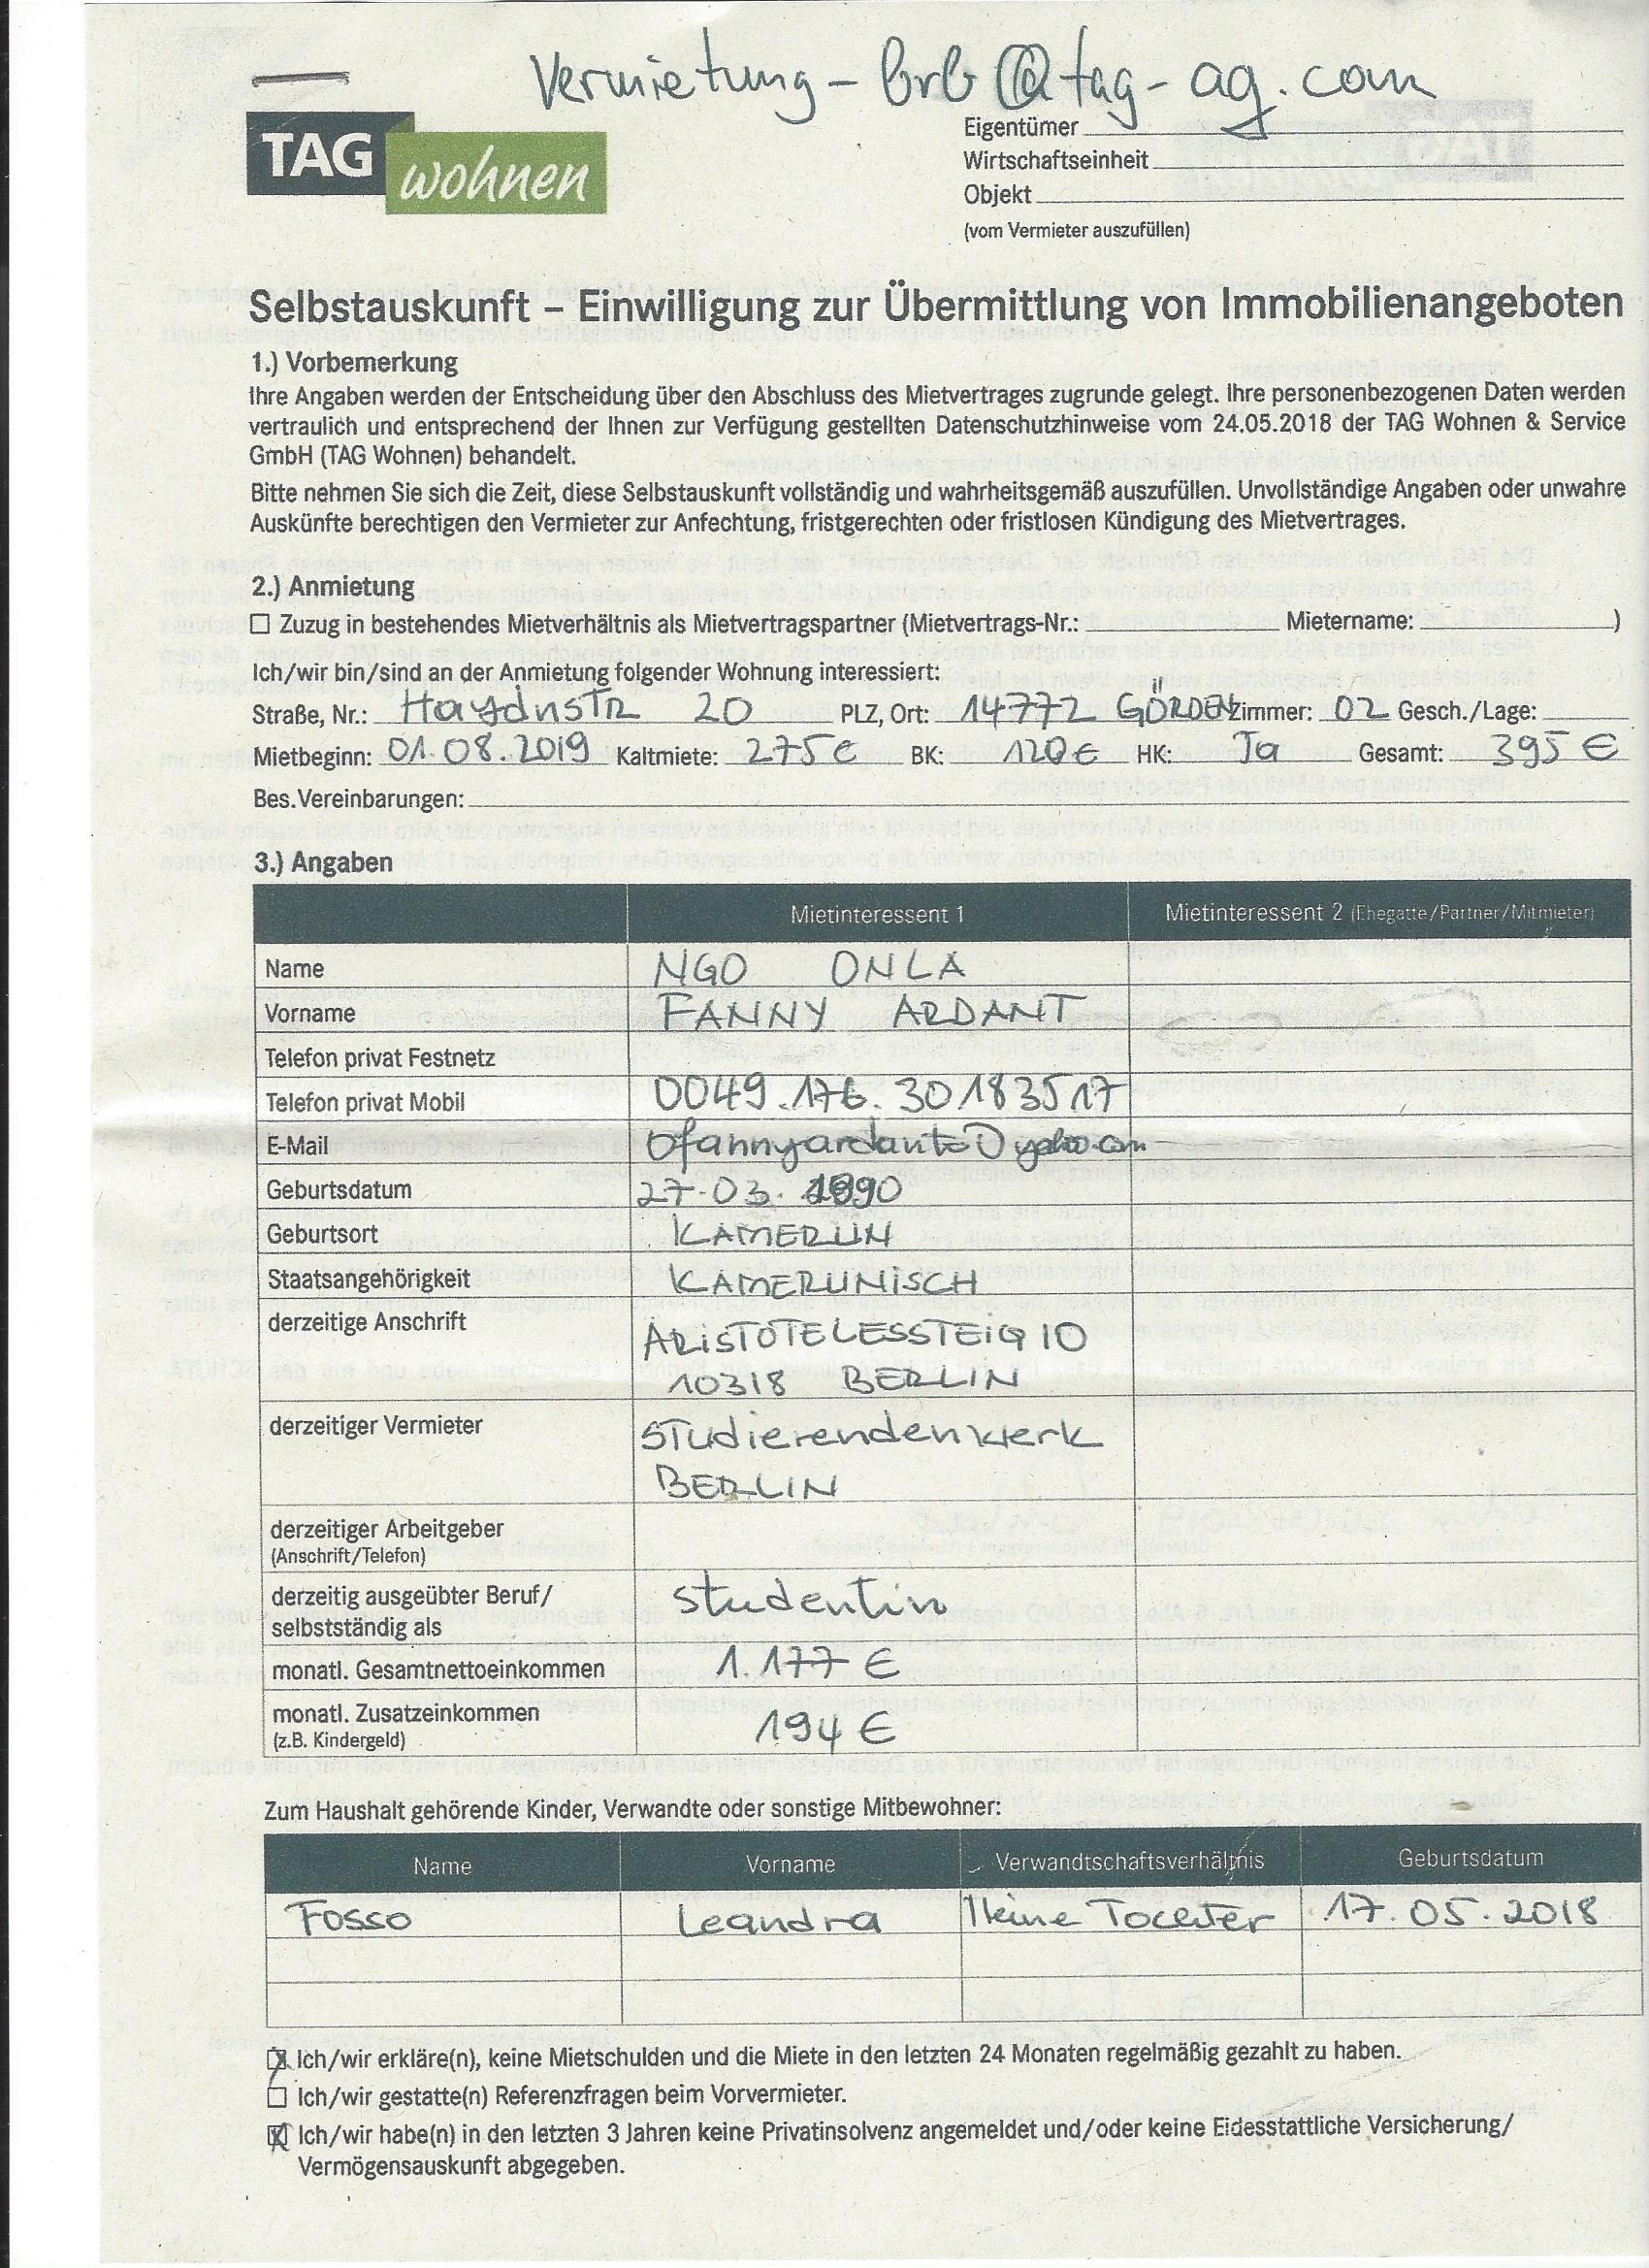 Vermietung-brb@tag-ag.com
TAG wohnen
Eigentümer
Wirtschaftseinheit
Objekt
(vom Vermieter auszufüllen)
Selbstauskunft – Einwilligung zur Übermittlung von Immobilienangeboten
1.) Vorbemerkung
Ihre Angaben werden der Entscheidung über den Abschluss des Mietvertrages zugrunde gelegt. Ihre personenbezogenen Daten werden
vertraulich und entsprechend der Ihnen zur Verfügung gestellten Datenschutzhinweise vom 24.05.2018 der TAG Wohnen & Service
GmbH (TAG Wohnen) behandelt.
Bitte nehmen Sie sich die Zeit, diese Selbstauskunft vollständig und wahrheitsgemäß auszufüllen. Unvollständige Angaben oder unwahre
Auskünfte berechtigen den Vermieter zur Anfechtung, fristgerechten oder fristlosen Kündigung des Mietvertrages.
2.) Anmietung
☐ Zuzug in bestehendes Mietverhältnis als Mietvertragspartner (Mietvertrags-Nr.: Mietername: )
Ich/wir bin/sind an der Anmietung folgender Wohnung interessiert:
Straße, Nr.: HaydnstR 20 PLZ, Ort: 14772 GÖRDEN Zimmer: 02 Gesch./Lage:
Mietbeginn: 01.08.2019 Kaltmiete: 275€ BK: 120€ HK: Ja Gesamt: 395 €
Bes.Vereinbarungen:
3.) Angaben
Mietinteressent 1 Mietinteressent 2 (Ehegatte/Partner/Mitmieter)
Name NGO ONLA
Vorname FANNY ARDANT
Telefon privat Festnetz
Telefon privat Mobil 0049.176.30183517
E-Mail Ofannyardante@yahoo.com
Geburtsdatum 27.03.1990
Geburtsort KAMERUN
Staatsangehörigkeit KAMERUNiSCH
derzeitige Anschrift ARiSTOTELESSTEiG 10
10318 BERLIN
derzeitiger Vermieter STudierendenwerk
BERLIN
derzeitiger Arbeitgeber
(Anschrift/Telefon)
derzeitig ausgeübter Beruf/ studentin
selbstständig als
monatl. Gesamtnettoeinkommen 1.177 €
monatl. Zusatzeinkommen 194 €
(z.B. Kindergeld)
Zum Haushalt gehörende Kinder, Verwandte oder sonstige Mitbewohner:
Name Vorname Verwandtschaftsverhältnis Geburtsdatum
Fosso Leandra Meine Tochter 17.05.2018
☒ Ich/wir erkläre(n), keine Mietschulden und die Miete in den letzten 24 Monaten regelmäßig gezahlt zu haben.
☐ Ich/wir gestatte(n) Referenzfragen beim Vorvermieter.
☒ Ich/wir habe(n) in den letzten 3 Jahren keine Privatinsolvenz angemeldet und/oder keine Eidesstattliche Versicherung/
Vermögensauskunft abgegeben.